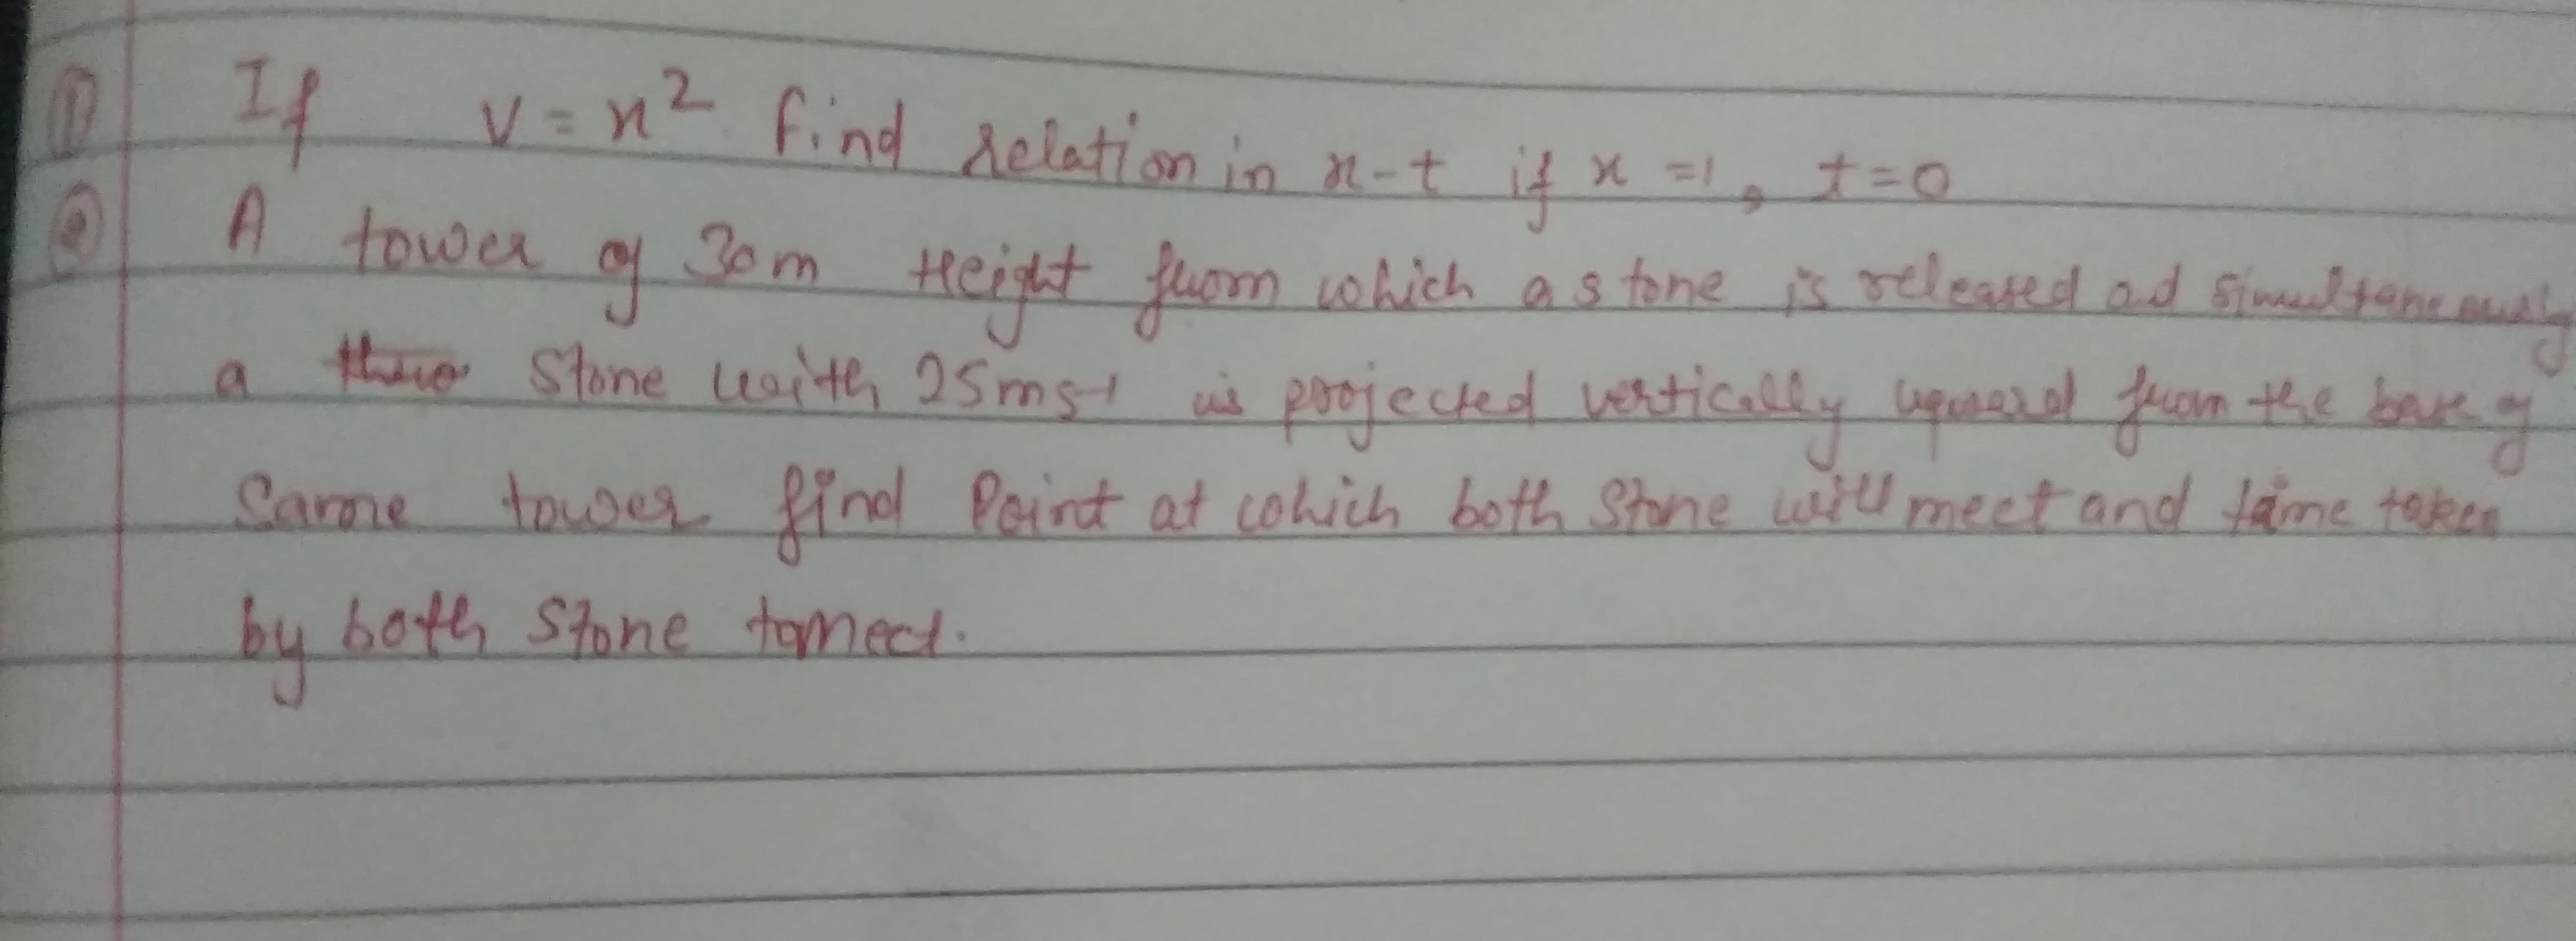 ① If v = x² find relation in x-t if x = 1, t = 0
② A tower of 30m Height from which a stone is released ad simultaneously
a stone with 25ms-1 is projected vertically upward from the base of
Same tower find Point at which both Stone will meet and time taken
by both Stone tomeet.